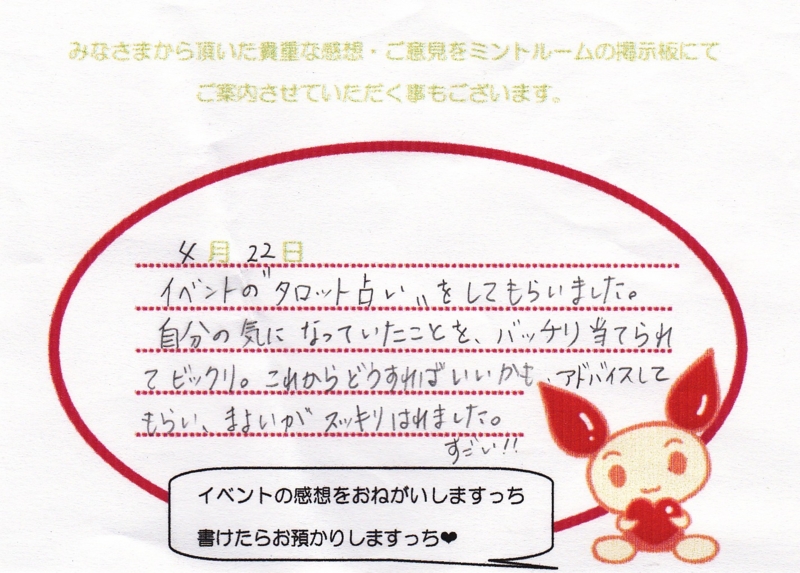 みなさまから頂いた貴重な感想・ご意見をミントルームの掲示板にて
ご案内させていただく事もございます。
4月22日
イベントの"タロット占い"をしてもらいました。
自分の気になっていたことを、バッチリ当てられ
てビックリ。これからどうすればいいかも、アドバイスして
もらい、まよいがスッキリはれました。
すごい!!
イベントの感想をおねがいしますっち
書けたらお預かりしますっち❤